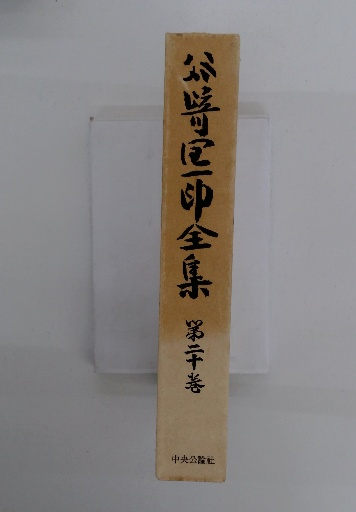 谷崎潤一郎全集
第二十巻
中央公論社